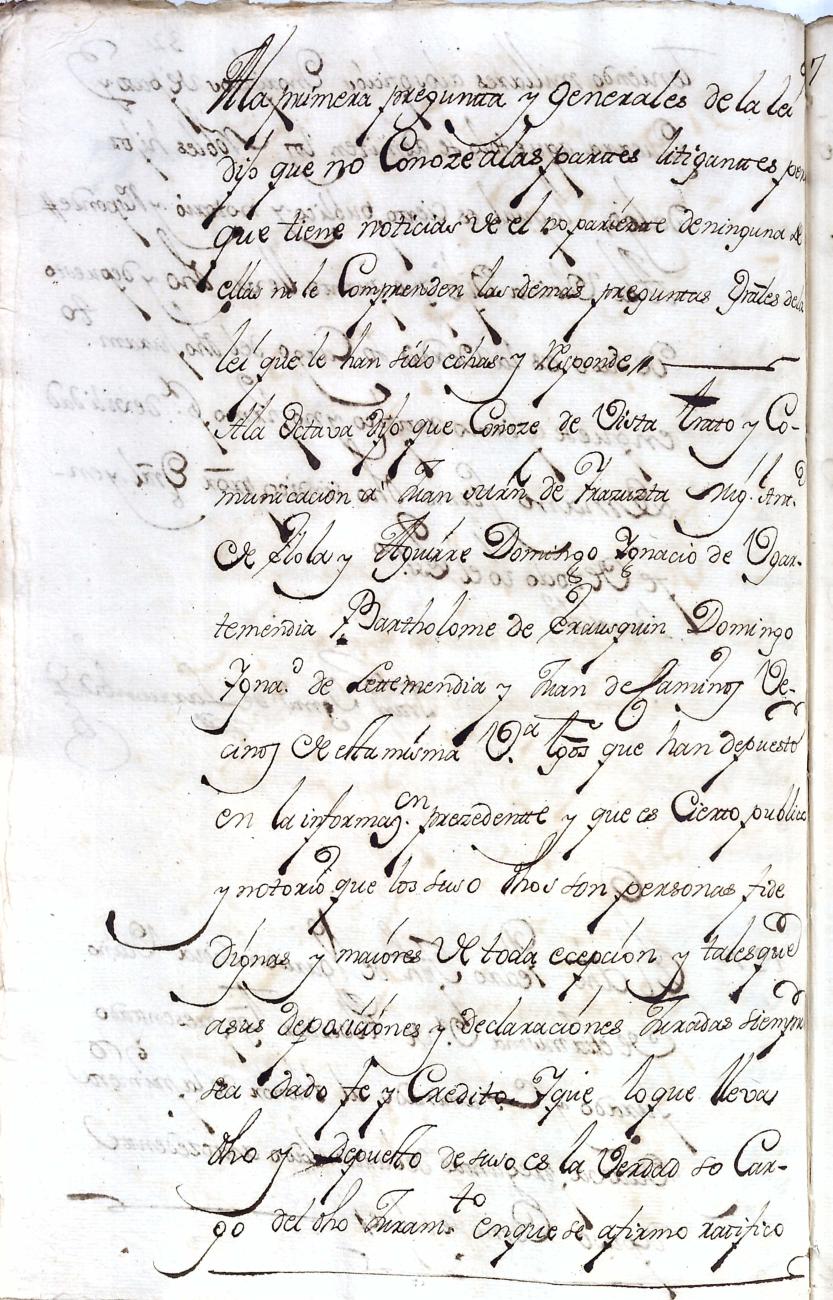 Ala primera pregunta y Generales de la lei
dijo que no Conoze alas partes litigantes pero
que tiene noticias de el no pariente de ninguna de
ellas ni le Comprenden las demas preguntas Gräles dela
lei que le han sido echas y Responde
Ala Octava dijo que Conoze de Vista trato y Co-
municacion a Juan de Miḡ. Antt.º
de Flola y Aguirre Domingo Ignacio de Ugar-
temendia Bartholome de Erausquin Domingo
Igna.º de Lettemendia y Juan de Caminos Ve-
cinos de esta misma V.ª tgos que han depuesto
en la informaz.on prezedentte y que es Cierto publico
y notorio que los suso dhos son personas fide
dignas y maiores de toda ecepcion y tales que
asus deposiciones y declaraciones Juradas siempre
sea dado fe y Credito Y que lo que lleva
dho y depuesto de suso es la Verdad so Car-
go del dho Juram.to en que se afirmo ratifico